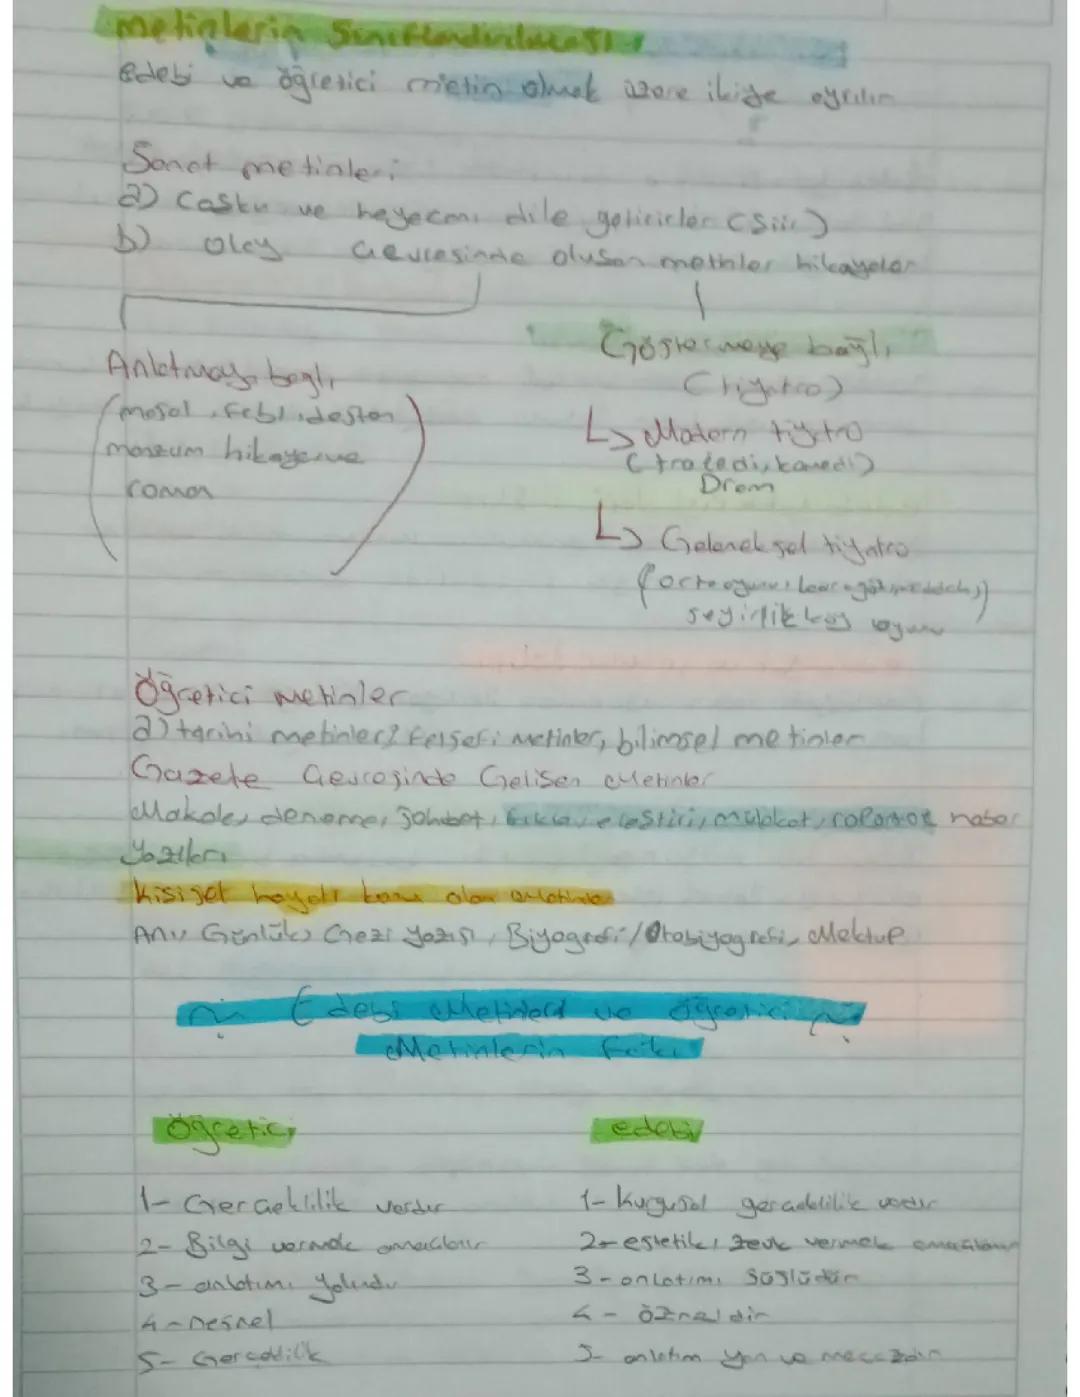 metinlerin Sınıflandırılması
edebi ve öğretici metin olmak üzere ikiye ayrılır
Sanat metinleri
a) Coşku ve heyecanı dile getirirler (Şiir)
b) olay çevresinde oluşan metinler hikayeler
Anlatmaya bağlı
(masal, fabl, destan
manzum hikaye ve
roman)
Göstermeye bağlı
(tiyatro)
↳ Modern tiyatro
(tragedi, komedi)
Dram
↳ Geleneksel tiyatro
(orta oyunu, karagöz, meddah,)
seyirlik köy oyunu
Öğretici metinler
a) tarihi metinler, felsefi metinler, bilimsel metinler
Gazete Çevresinde Gelişen Metinler
Makale, deneme, sohbet, fıkra, eleştiri, mülakat, röportaj haber
Yazıları
Kişisel hayatı konu alan metinler
Anı, Günlük, Gezi Yazısı, Biyografi/Otobiyografi, Mektup
Edebi Metinlerd ve öğretici
Metinlerin Farkı
Öğretici
1- Gerçeklilik vardır
2- Bilgi vermek amaçlanır
3- anlatımı yalındır
4- nesnel
5- Gerçeklik
edebi
1- Kurgusal gerçeklilik vardır
2- estetik, zevk vermek amaçlanır
3- anlatımı süslüdür
4- özneldir
5- anlatım yan ve mecazdır